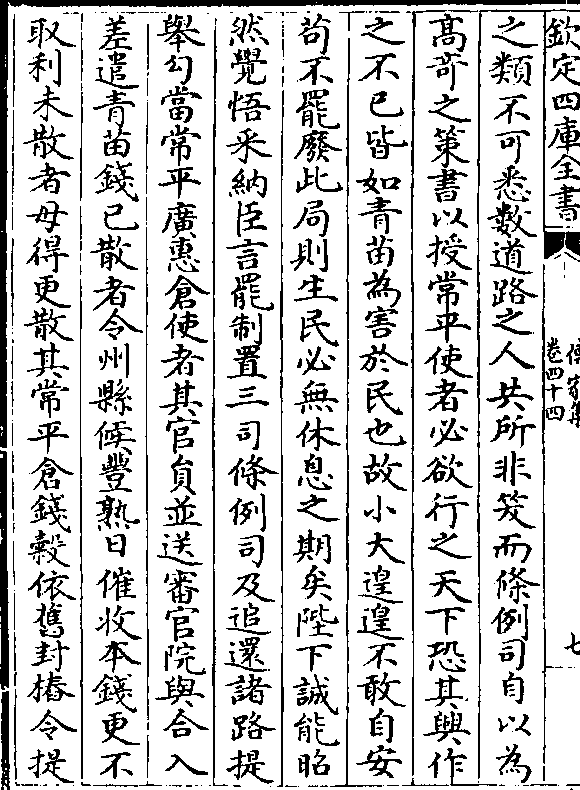 欽定四庫全書
傳家集
卷四十四
七
之類不可悉數道路之人共所非笑而條例司自以為
髙竒之策書以授常平使者必欲行之天下恐其興作
之不已皆如青苗為害於民也故小大遑遑不敢自安
茍不罷廢此局則生民必無休息之期矣陛下誠能昭
然覺悟采納臣言罷制置三司條例司及追還諸路提
舉勾當常平廣惠倉使者其官負並送審官院與合入
差遣青苗錢已散者令州縣候豐熟日催收本錢更不
取利未散者毋得更散其常平倉錢穀依舊封樁令提